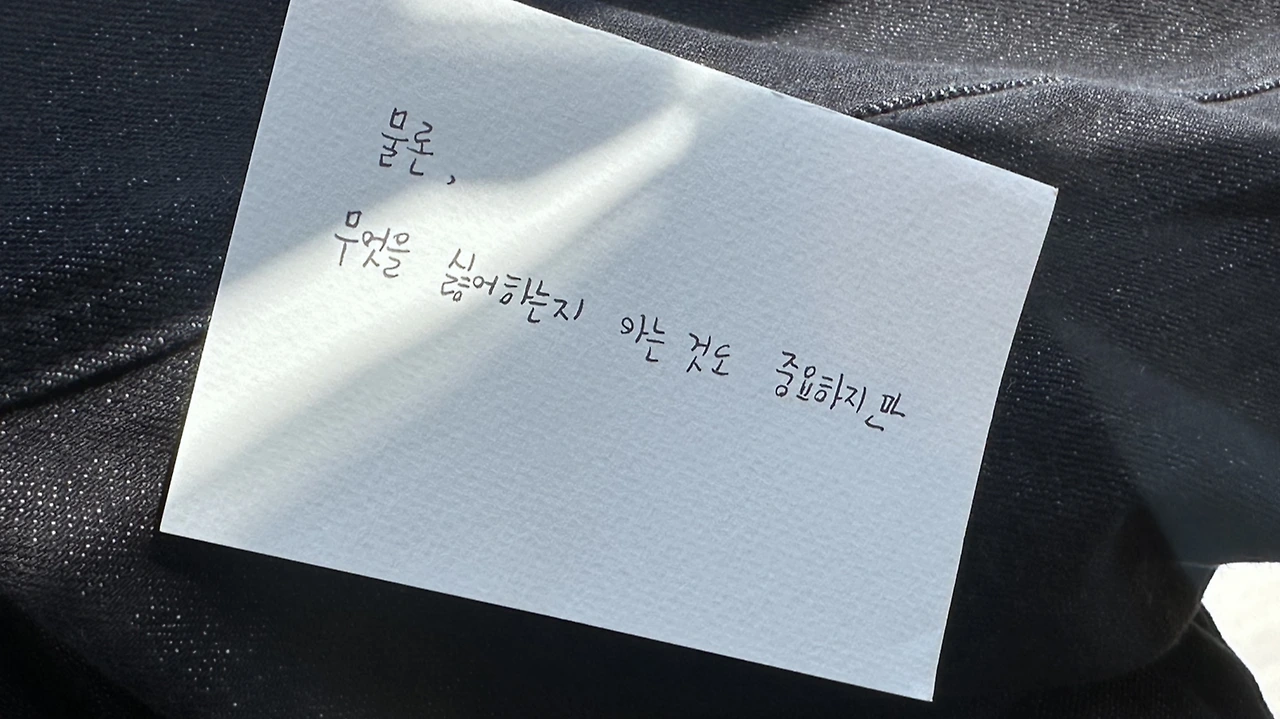 물론,
무엇을 싫어하는지 아는 것도 중요하지만